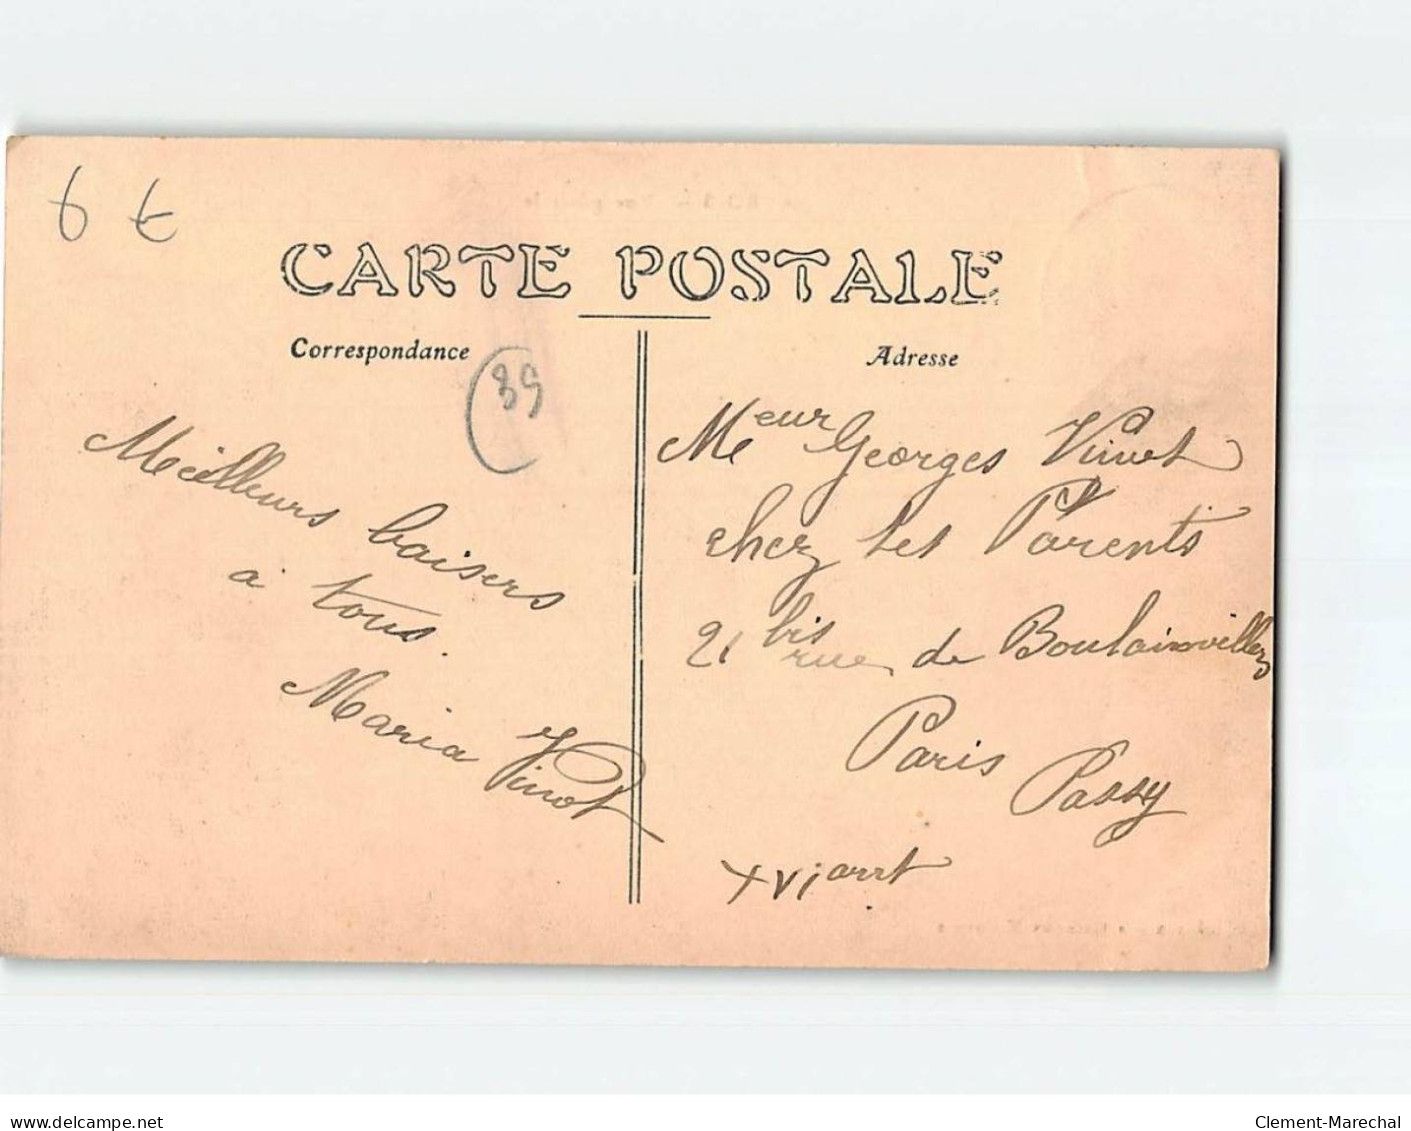 6 €
CARTE POSTALE
Correspondance
Adresse
89
Meilleurs baisers
à tous.
Maria Vinot
Meur Georges Vinot
chez ses Parents
21 bis rue de Boulainvilliers
Paris
Passy
XVI arrt
delcampe.net
Clement-Marechal